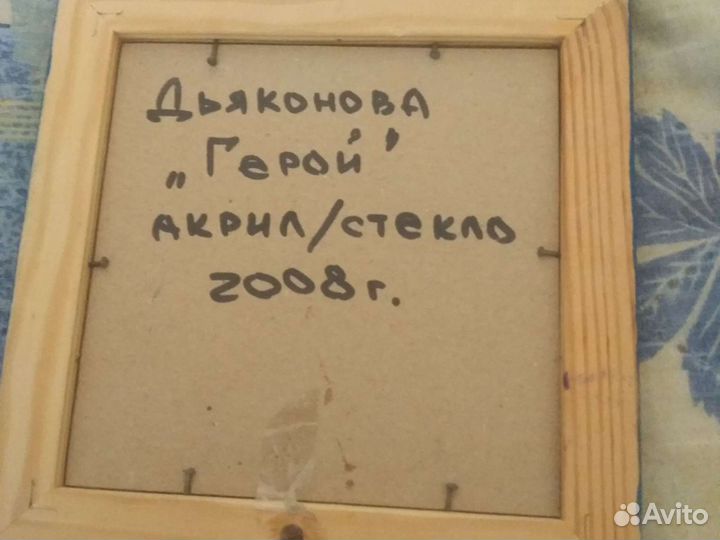 Дьяконова
„Герой"
акрил/стекло
2008 г.
Avito